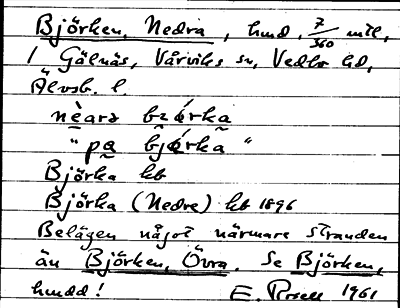 Björken, Nedra, hmd. 7/360 mtl,
i Gälnäs, Vårviks sn, Vedbo hd,
Älvsb. l.
nèarə bzǿrka
" pa bjǿrka "
Björka kb
Björka (Nedre) kb 1896
Belägen något närmare stranden
än Björken, Övra. Se Björken,
hmdd! E. Rosell 1961